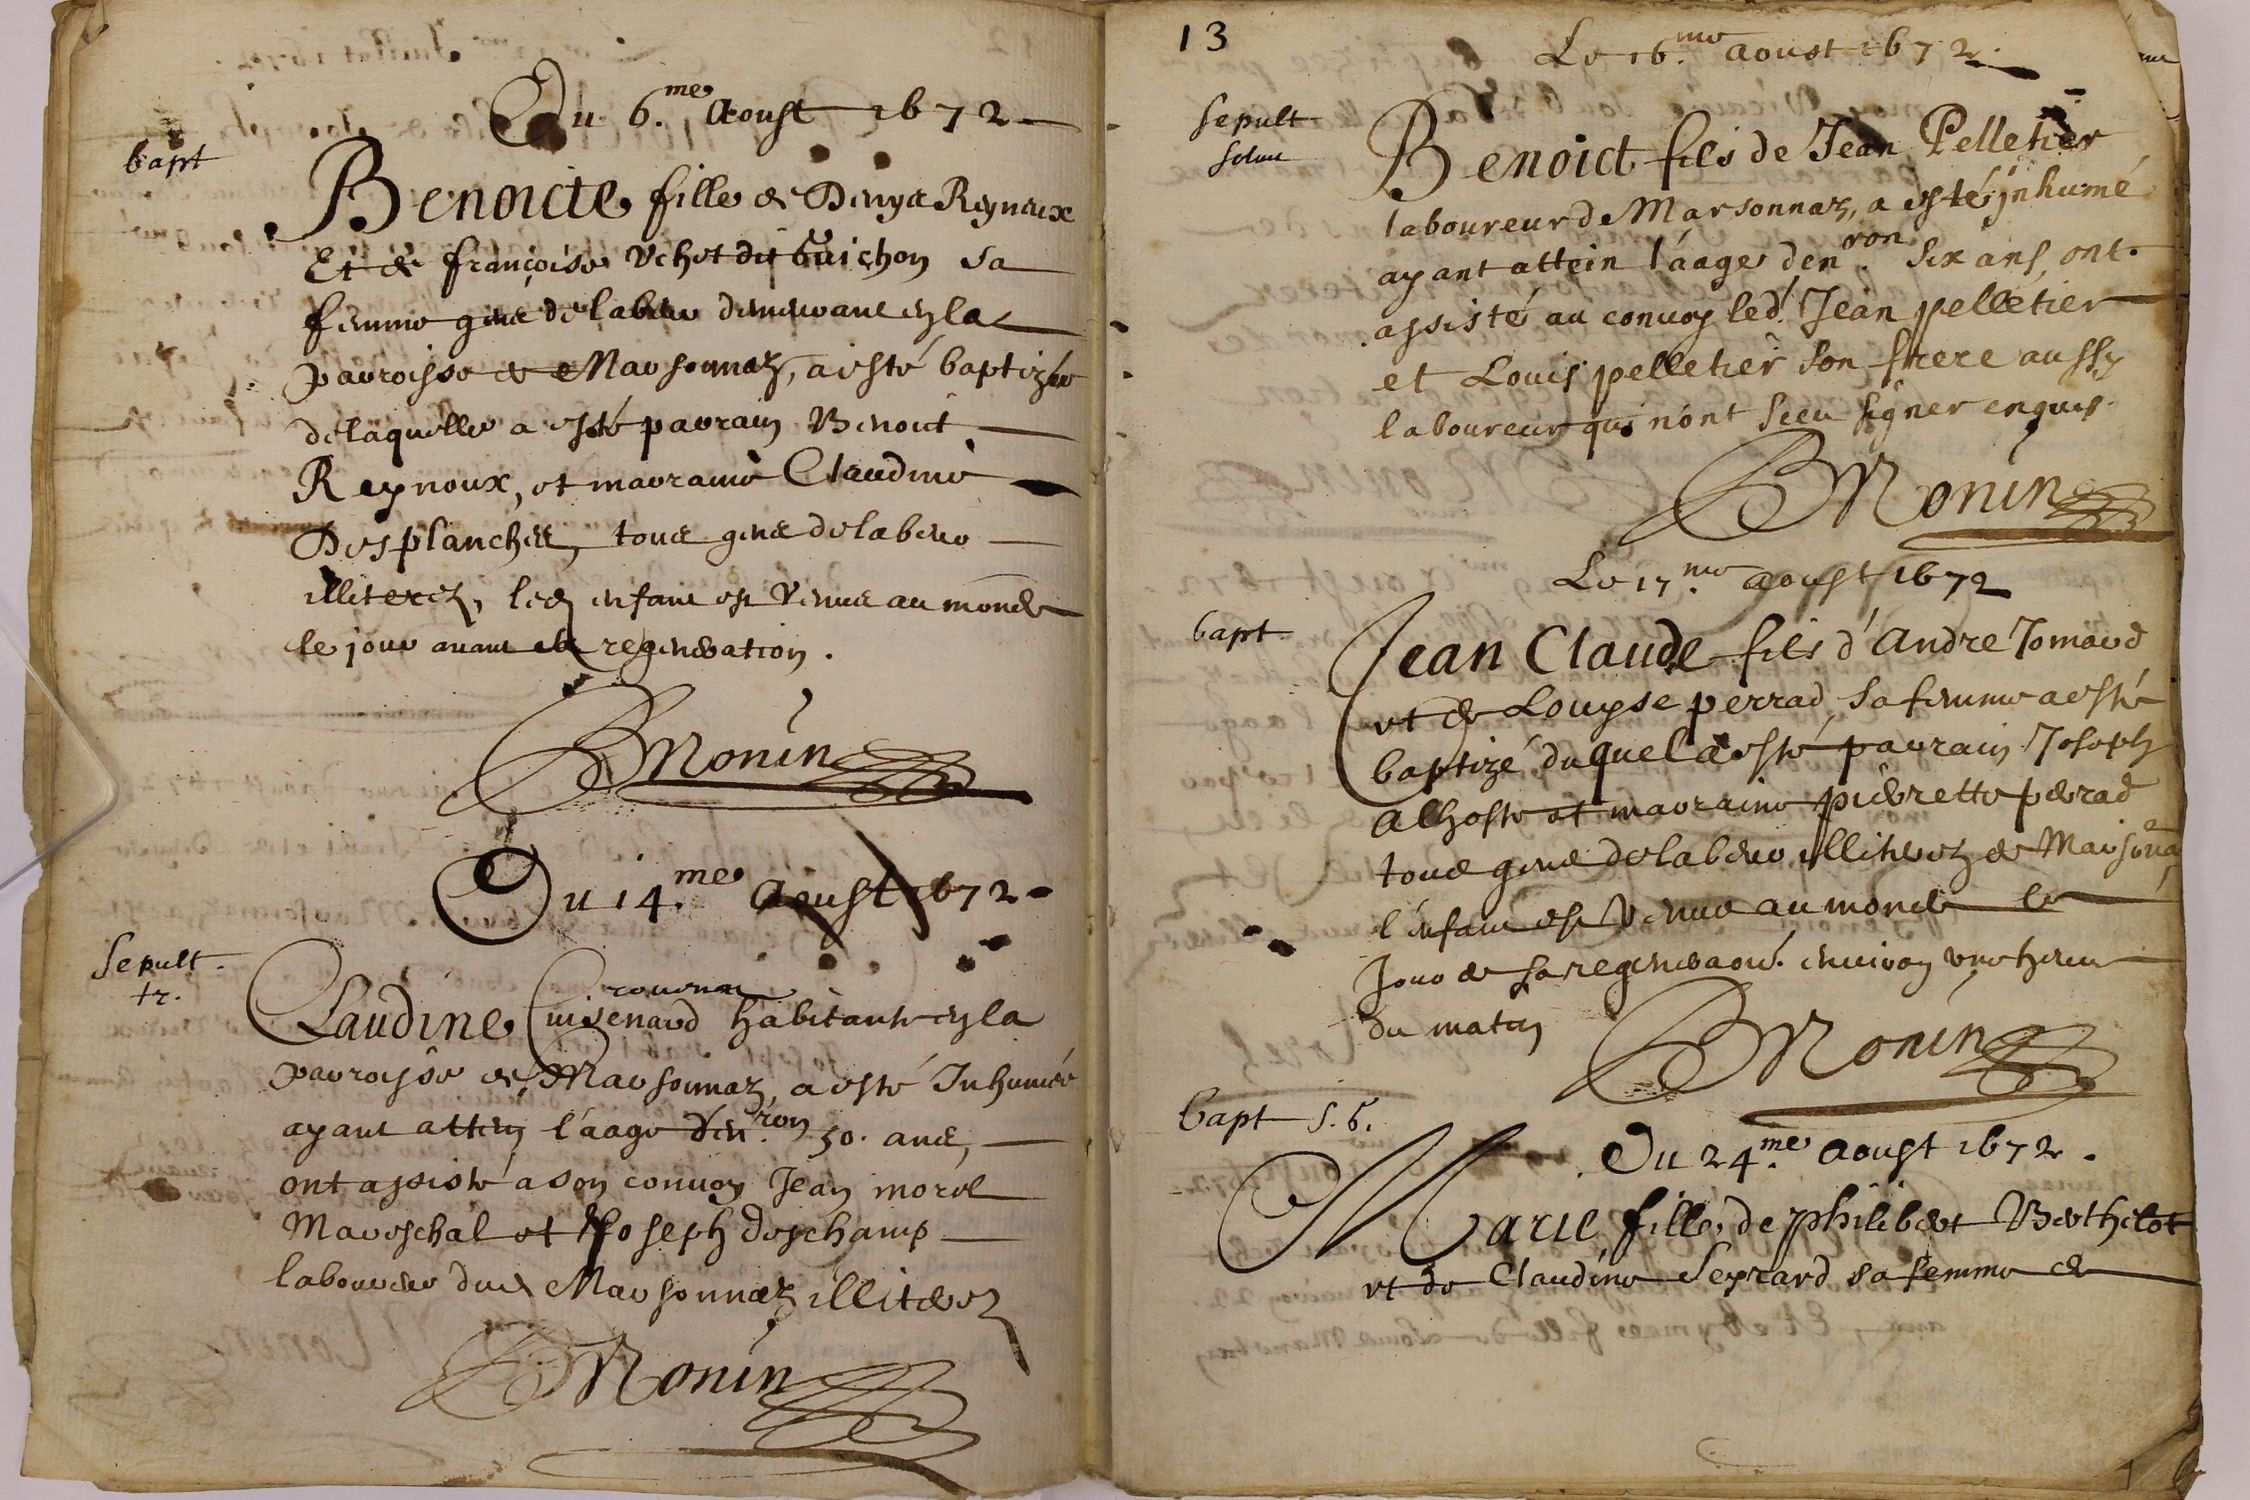 Du 6.me Aoust 1672
bapt
Benoicte fille de Denys Reyneux
Et de françoise Vchet dit Guichon sa
femme gens de labeur demeurant en la
parroisse de Marsonnaz, a esté baptizée
de laquelle a esté parrain Benoict
Reynoux, et marraine Claudine
Desplanches, tous gens de labeur
illiterez, led enfant est venus au monde
le jour avant sa regeneration.
BMonin
Du 14.me Aoust 1672
Sepult.
tr.
Claudine Cuisenard habitante en la
parroisse de Marsonnaz, a esté Inhumée
ayant attein l'aage d'en.ron 50. ans,
ont assisté a son convoy Jean morel
Mareschal et Joseph deschamp
laboureur dud Marsonnaz illiterez
BMonin
13
Le 16.me aoust 1672.
Sepult
Benoict fils de Jean Pelletier
laboureur de Marsonnaz, a esté inhumé
ayant attein l'aage d'en.ron six ans, ont
assisté au convoy led. Jean pelletier
et Louis pelletier son frere aussy
laboureur qui n'ont sceu signer enquis.
BMonin
Le 17.me aoust 1672
bapt.
Jean Claude fils d'Andre Jomard
et de Louyse perrad, sa femme a esté
baptizé duquel a esté parrain Joseph
Alhoste et marraine pierrette perrad
tous gens de labeur illiterez de Marsoña,
l'enfant est venus au monde le
Jour de sa regeneraõn. environ une heure
du matin
BMonin
bapt S. b.
Du 24.me Aoust 1672.
Marie fille de philibert Berthelot
et de Claudine Seyrard sa femme de